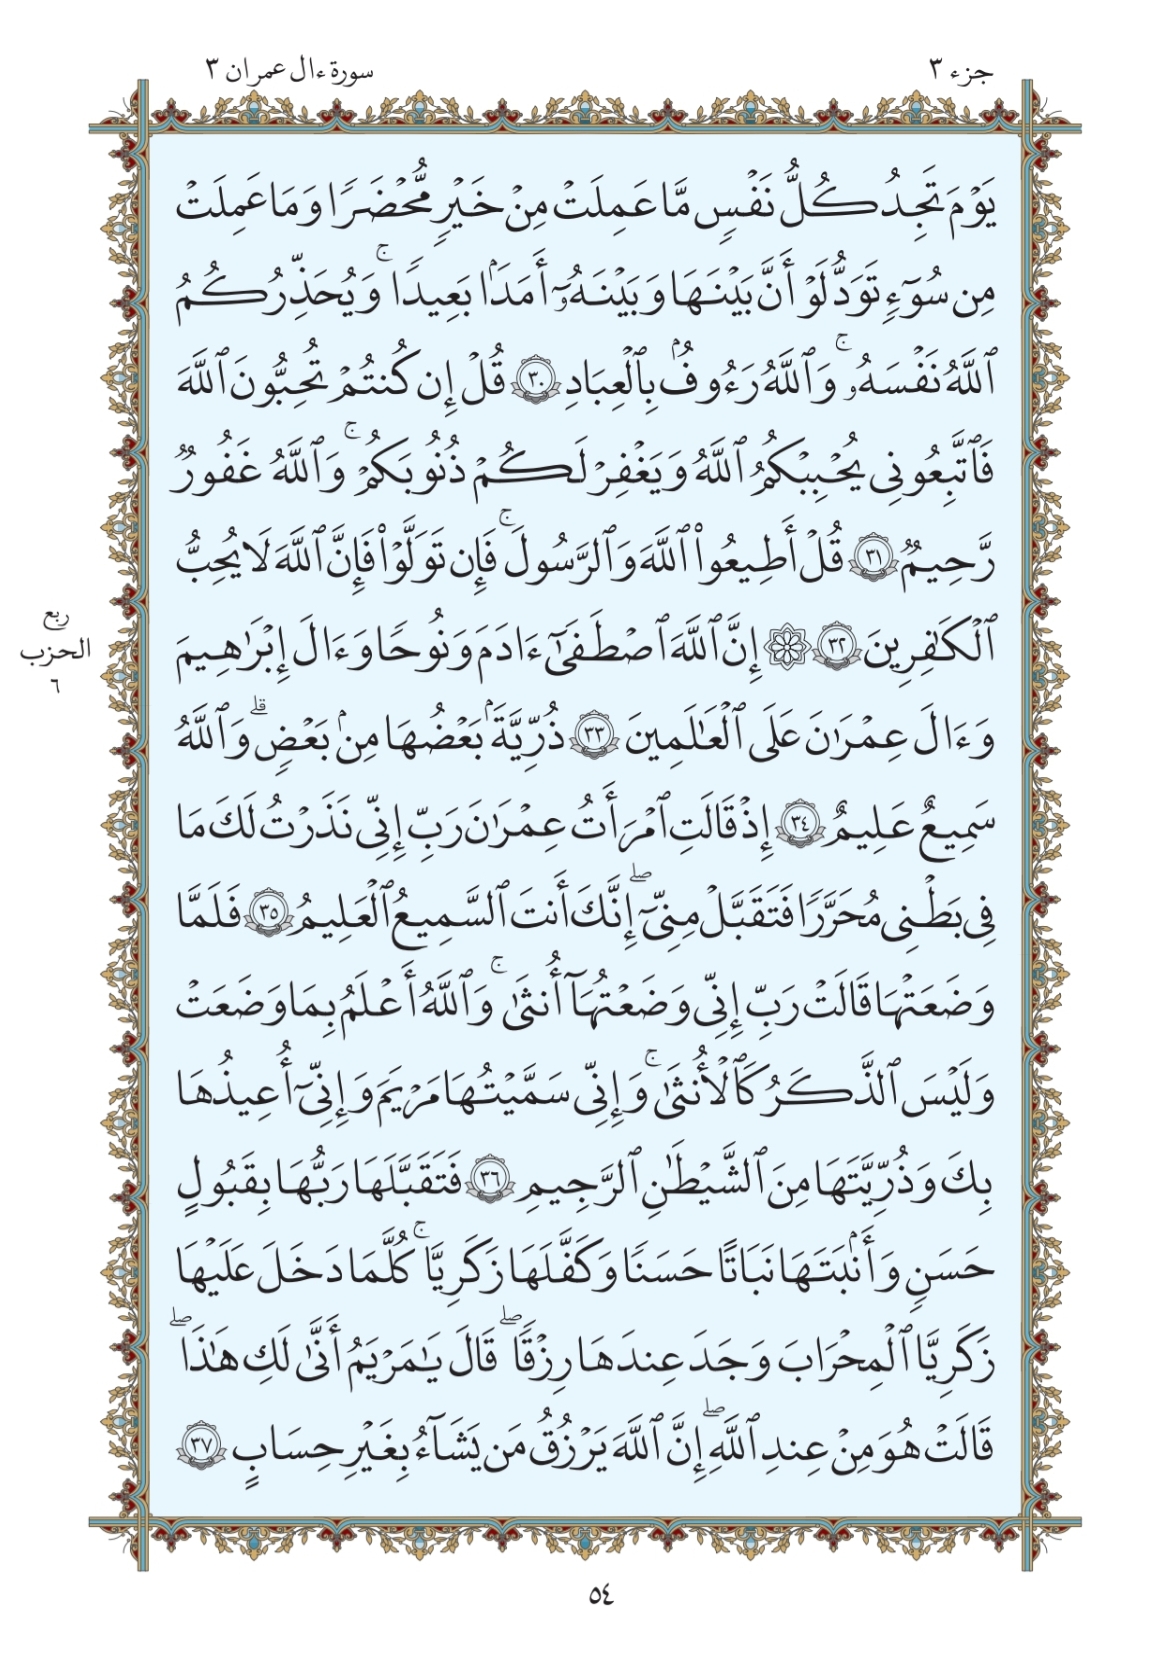 جزء ٣
سورة ءال عمران ٣
يَوْمَ تَجِدُ كُلُّ نَفْسٍ مَّا عَمِلَتْ مِنْ خَيْرٍ مُّحْضَرًا وَمَا عَمِلَتْ
مِن سُوٓءٍ تَوَدُّ لَوْ أَنَّ بَيْنَهَا وَبَيْنَهُۥٓ أَمَدًۢا بَعِيدًا ۚ وَيُحَذِّرُكُمُ
ٱللَّهُ نَفْسَهُۥ ۚ وَٱللَّهُ رَءُوفٌۢ بِٱلْعِبَادِ ٣٠ قُلْ إِن كُنتُمْ تُحِبُّونَ ٱللَّهَ
فَٱتَّبِعُونِى يُحْبِبْكُمُ ٱللَّهُ وَيَغْفِرْ لَكُمْ ذُنُوبَكُمْ ۚ وَٱللَّهُ غَفُورٌ
رَّحِيمٌ ٣١ قُلْ أَطِيعُوا۟ ٱللَّهَ وَٱلرَّسُولَ ۚ فَإِن تَوَلَّوْا۟ فَإِنَّ ٱللَّهَ لَا يُحِبُّ
ٱلْكَـٰفِرِينَ ٣٢ ۞ إِنَّ ٱللَّهَ ٱصْطَفَىٰٓ ءَادَمَ وَنُوحًا وَءَالَ إِبْرَٰهِيمَ
ربع
الحزب
٦
وَءَالَ عِمْرَٰنَ عَلَى ٱلْعَـٰلَمِينَ ٣٣ ذُرِّيَّةًۢ بَعْضُهَا مِنۢ بَعْضٍ ۗ وَٱللَّهُ
سَمِيعٌ عَلِيمٌ ٣٤ إِذْ قَالَتِ ٱمْرَأَتُ عِمْرَٰنَ رَبِّ إِنِّى نَذَرْتُ لَكَ مَا
فِى بَطْنِى مُحَرَّرًا فَتَقَبَّلْ مِنِّىٓ ۖ إِنَّكَ أَنتَ ٱلسَّمِيعُ ٱلْعَلِيمُ ٣٥ فَلَمَّا
وَضَعَتْهَا قَالَتْ رَبِّ إِنِّى وَضَعْتُهَآ أُنثَىٰ ۚ وَٱللَّهُ أَعْلَمُ بِمَا وَضَعَتْ
وَلَيْسَ ٱلذَّكَرُ كَٱلْأُنثَىٰ ۚ وَإِنِّى سَمَّيْتُهَا مَرْيَمَ وَإِنِّىٓ أُعِيذُهَا
بِكَ وَذُرِّيَّتَهَا مِنَ ٱلشَّيْطَـٰنِ ٱلرَّجِيمِ ٣٦ فَتَقَبَّلَهَا رَبُّهَا بِقَبُولٍ
حَسَنٍ وَأَنۢبَتَهَا نَبَاتًا حَسَنًا وَكَفَّلَهَا زَكَرِيَّا ۚ كُلَّمَا دَخَلَ عَلَيْهَا
زَكَرِيَّا ٱلْمِحْرَابَ وَجَدَ عِندَهَا رِزْقًا ۖ قَالَ يَـٰمَرْيَمُ أَنَّىٰ لَكِ هَـٰذَا ۖ
قَالَتْ هُوَ مِنْ عِندِ ٱللَّهِ ۖ إِنَّ ٱللَّهَ يَرْزُقُ مَن يَشَآءُ بِغَيْرِ حِسَابٍ ٣٧
٥٤